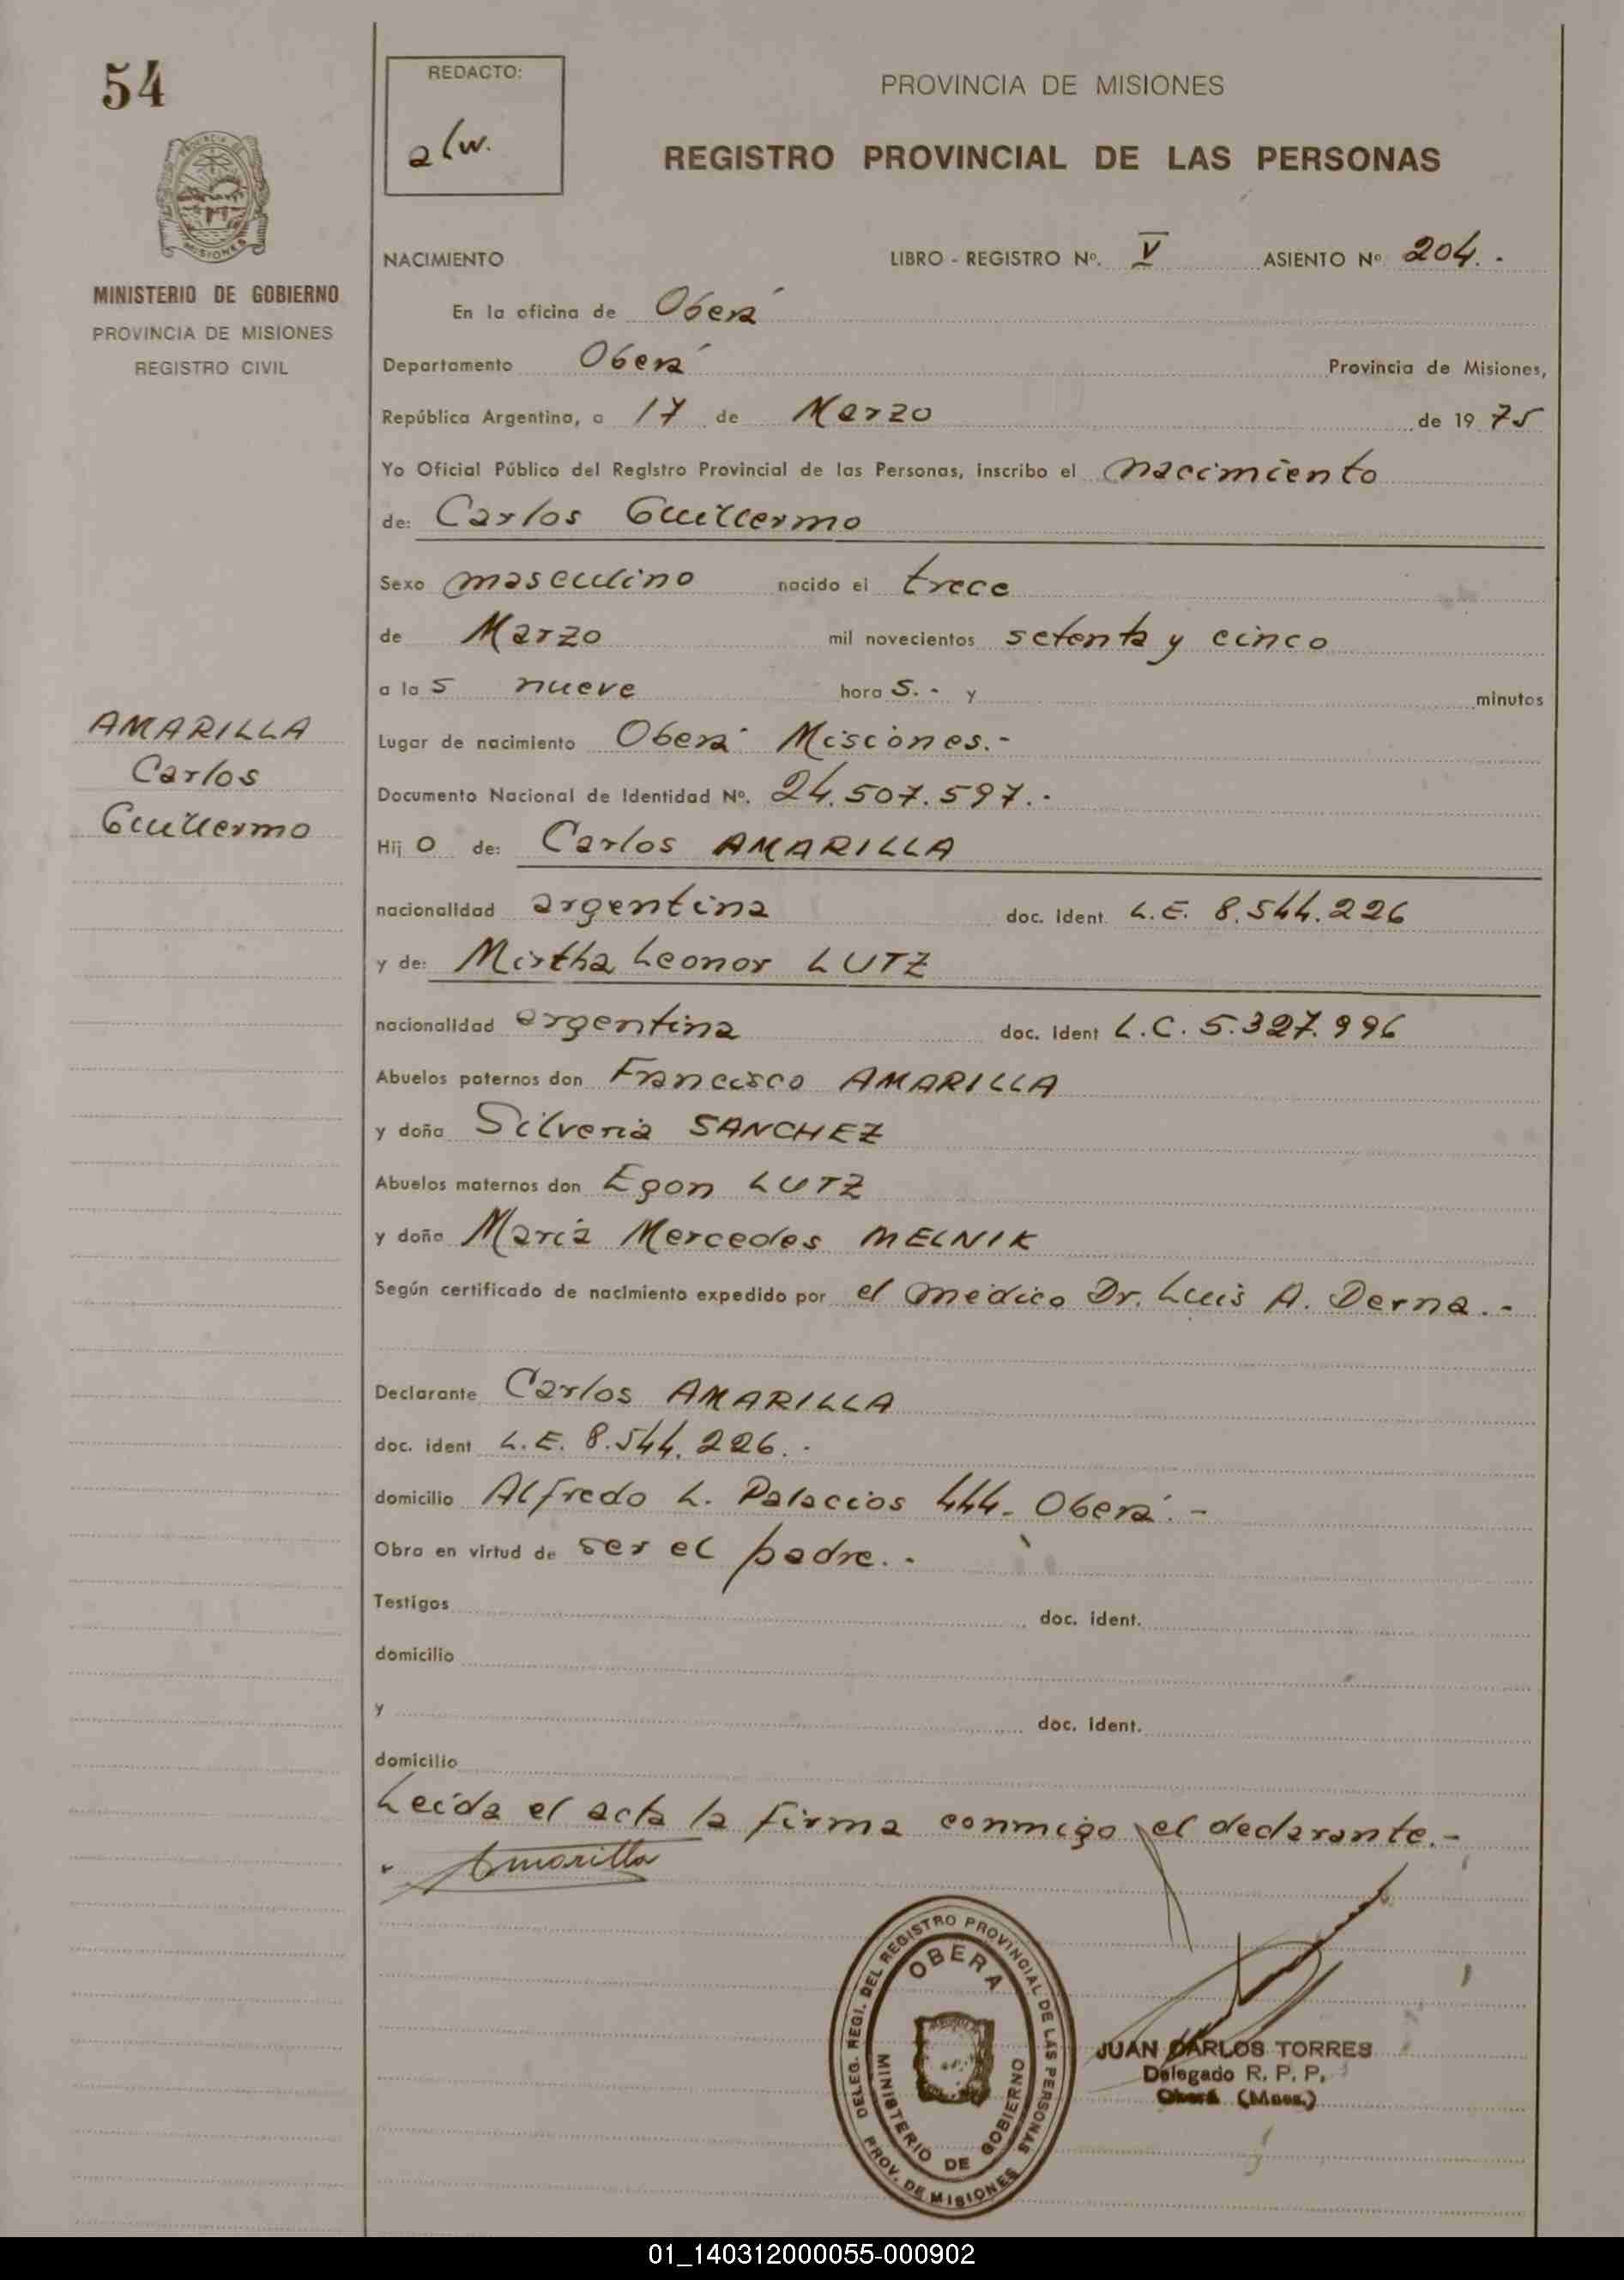 54
REDACTO:
alw.
PROVINCIA DE MISIONES
REGISTRO PROVINCIAL DE LAS PERSONAS
PROVINCIA DE
MISIONES
MINISTERIO DE GOBIERNO
PROVINCIA DE MISIONES
REGISTRO CIVIL
NACIMIENTO LIBRO - REGISTRO Nº. V ASIENTO Nº 204.-
En la oficina de Oberá
Departamento Oberá Provincia de Misiones,
República Argentina, a 17 de Marzo de 1975
Yo Oficial Público del Registro Provincial de las Personas, inscribo el nacimiento
de: Carlos Guillermo
Sexo masculino nacido el trece
de Marzo mil novecientos setenta y cinco
a las nueve horas.- y minutos
AMARILLA
Carlos
Guillermo
Lugar de nacimiento Oberá Misiones.-
Documento Nacional de Identidad Nº. 24.507.597.-
Hijo de: Carlos AMARILLA
nacionalidad argentina doc. ident. L.E. 8.544.226
y de: Mirtha Leonor LUTZ
nacionalidad argentina doc. ident L.C. 5.327.996
Abuelos paternos don Francisco AMARILLA
y doña Silveria SANCHEZ
Abuelos maternos don Egon LUTZ
y doña María Mercedes MELNIK
Según certificado de nacimiento expedido por el médico Dr. Luis A. Derna.-
Declarante Carlos AMARILLA
doc. ident L.E. 8.544.226.-
domicilio Alfredo L. Palacios 444. Oberá.-
Obra en virtud de ser el padre.-
Testigos doc. ident.
domicilio
y doc. ident.
domicilio
Leída el acta la firma conmigo el declarante.-
Amarilla
DELEG. REGI. DEL REGISTRO PROVINCIAL DE LAS PERSONAS
OBERA
MINISTERIO DE GOBIERNO
PROV. DE MISIONES
JUAN CARLOS TORRES
Delegado R. P. P.
Oberá (Mnes.)
01_140312000055-000902